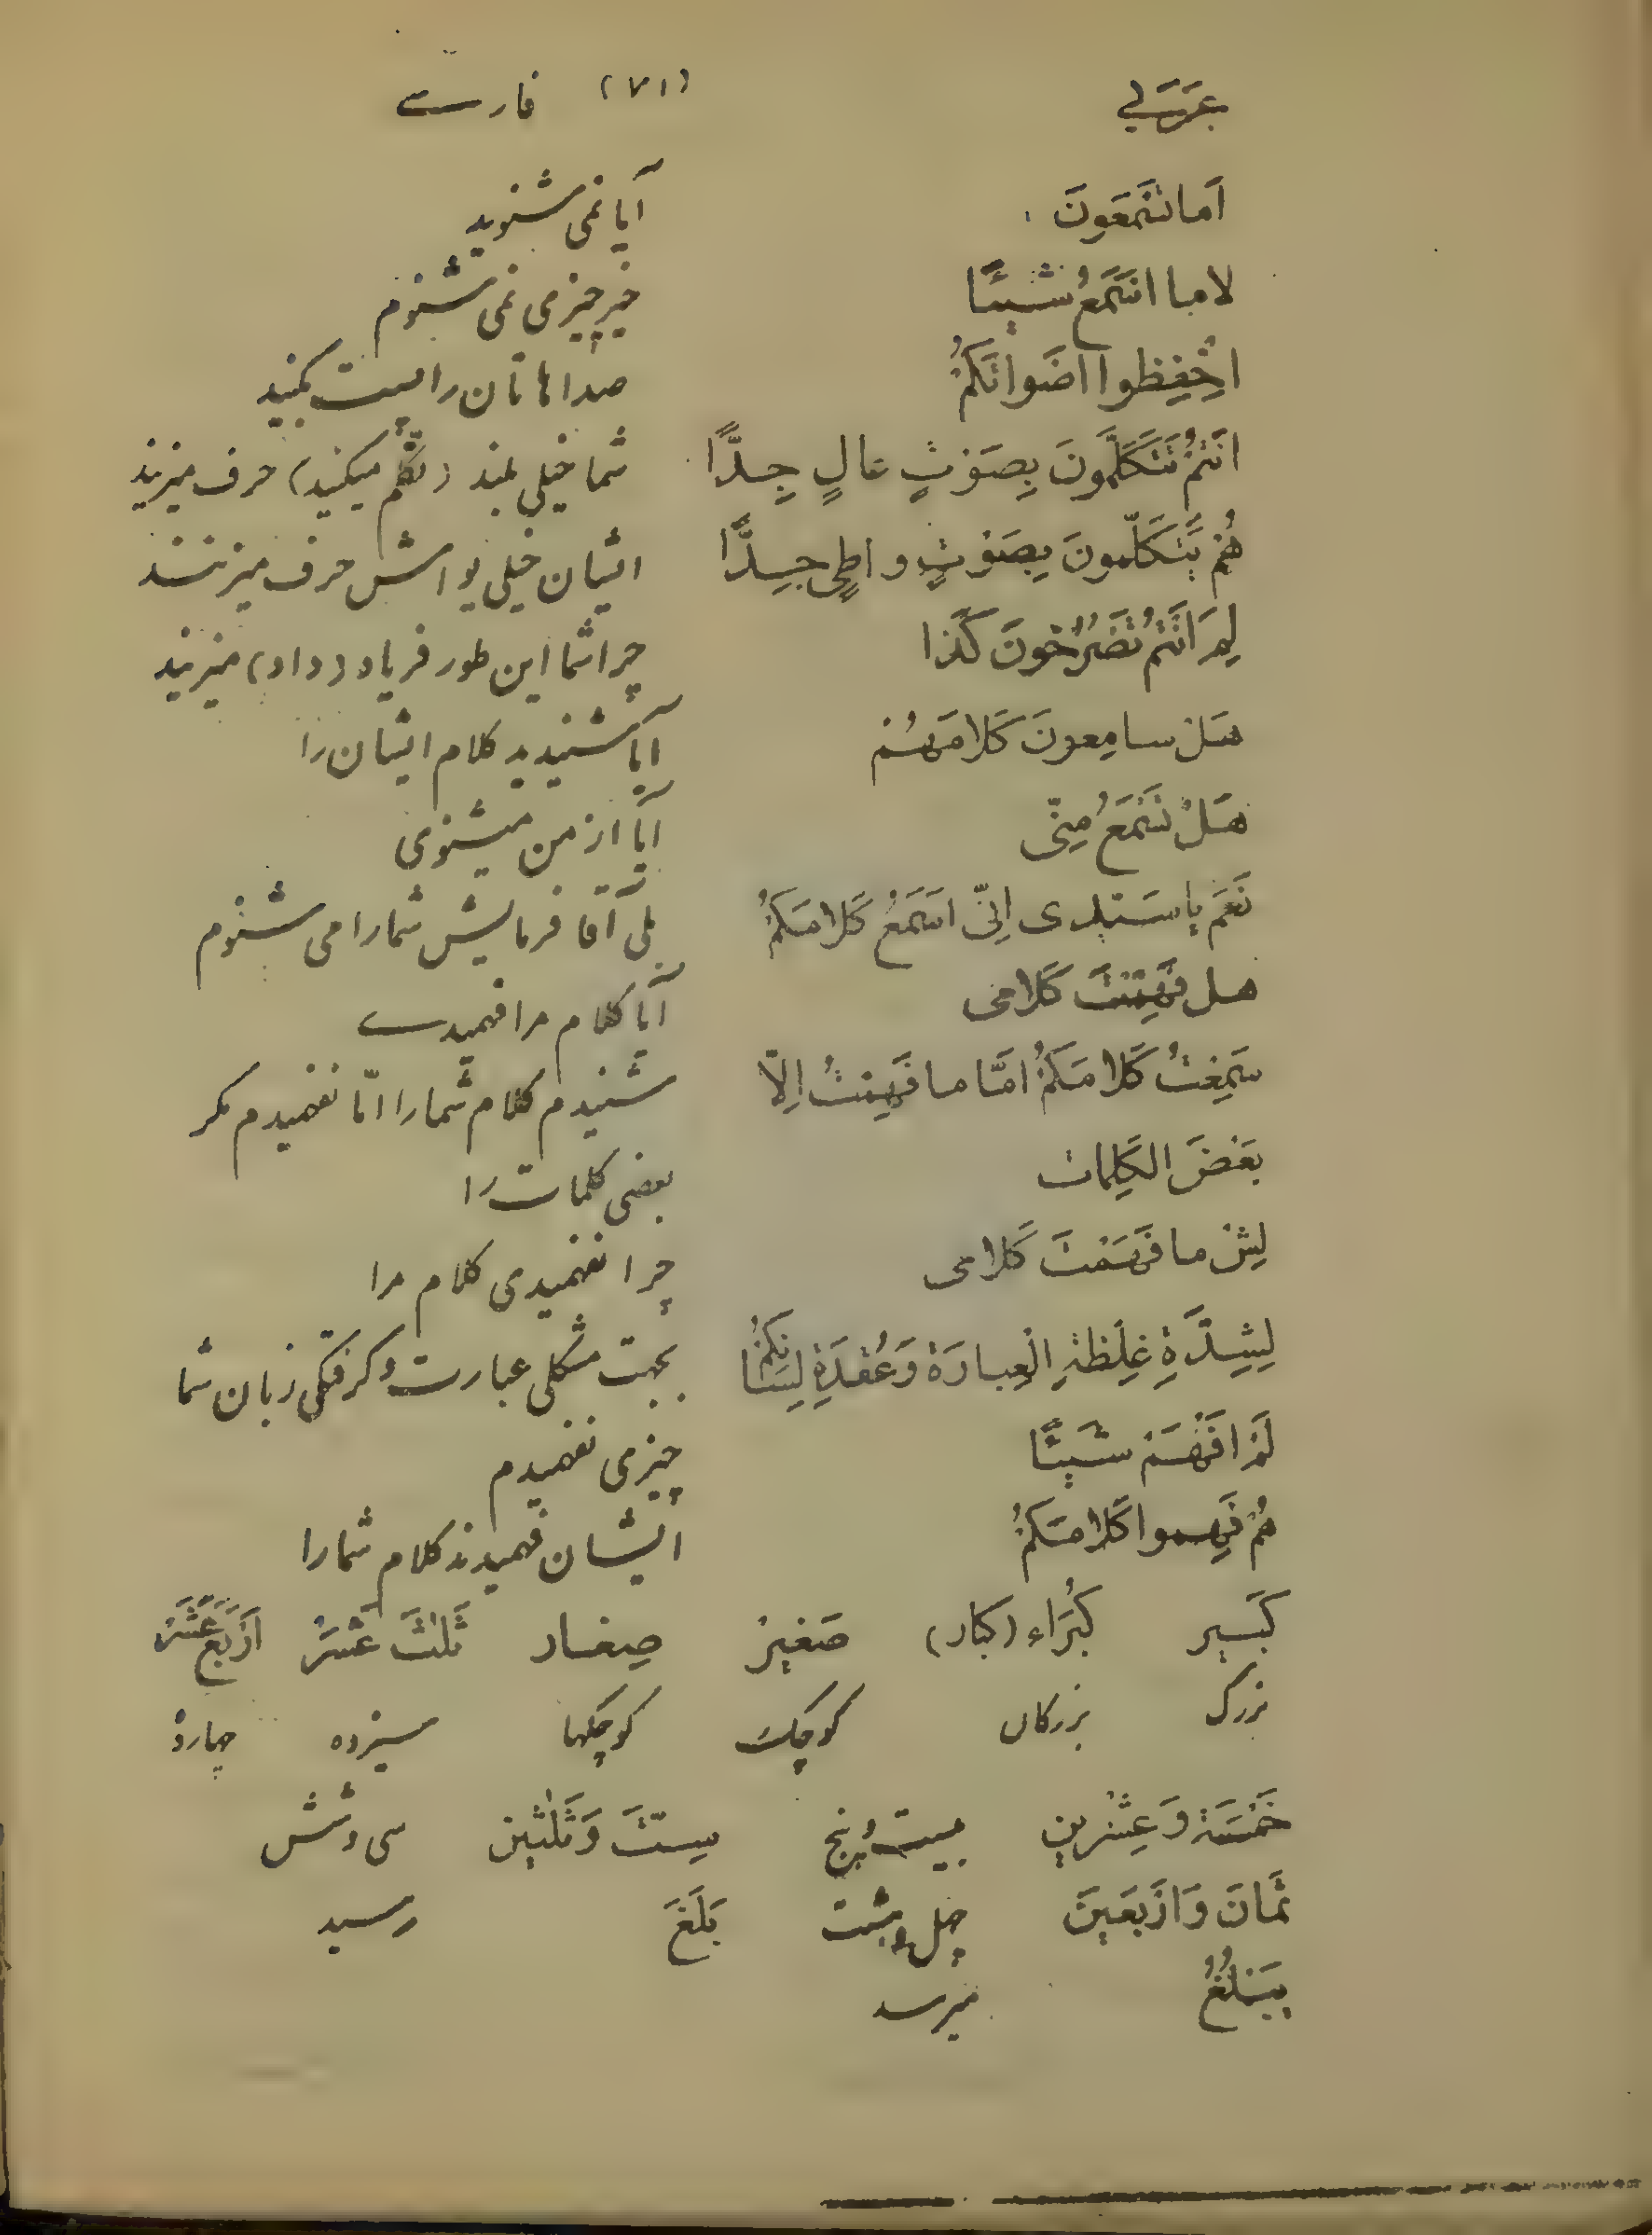 عَرَبی (٧١) فارسے
اَما تَسْمَعونَ آیا نمی شنوید
لا ما اَسْمَعُ شَیئًا خیر چیزی نمی شنوم
اخْفِظوا اصَواتَکُمْ صداهاتان را پست بکنید
انَتُمْ تَتَکَلَّمونَ بِصَوْتٍ عالٍ جِدًّا شما خیلی بلند (تکلّم میکنید) حرف میزنید
هُمْ یَتَکَلَّمونَ بِصَوْتٍ واطِیٍ جِدًّا ایشان خیلی یواش حرف میزنند
لِمَ انَتُمْ تَصْرُخونَ کَذا چرا شما این طور فریاد (داد) میزنید
هَلْ سامِعونَ کَلامَهُمْ آیا شنیدید کلام ایشان را
هَلْ تَسْمَعُ مِنّی آیا از من میشنوی
نَعَمْ یا سَیّدی اِنّی اسَمَعُ کَلامَکُمْ بلی آقا فرمایش شما را می شنوم
هل فَهِمْتَ کَلامی آیا کلام مرا فهمیدے
سَمِعْتُ کَلامَکُمْ امَّا ما فَهِمْتُ اِلّا شنیدم کلام شما را امّا نفهمیدم مکر
بَعْضَ الکَلِمات بعضی کلمات را
لِشْ ما فَهَمْتَ کَلامی چرا نفهمیدی کلام مرا
لِشِدَّةِ غِلْظَةِ الْعِبارَة وَعُقْدَةِ لِسانِکُمْ بجهت مشکلی عبارت و کرفتکی زبان شما
لَمْ افَهَمْ شَیئًا چیزی نفهمیدم
هُمْ فَهِموا کَلامَکُمْ ایشان فهمیدند کلام شما را
کَبیر کُبَراء (کبار) صَغیرْ صِغار ثَلثَ عَشَرْ ارَبَعَ عَشَرْ
بزرک بزرکان کوچک کوچکها سیزده چهارده
خَمْسَة وَعِشْرین بیست و پنج سِتّ وَثَلٰثین سی و شش
ثَمانَ وَارَبَعینَ چهل و هشت بَلَغَ رسید
یَبْلُغُ میرسد